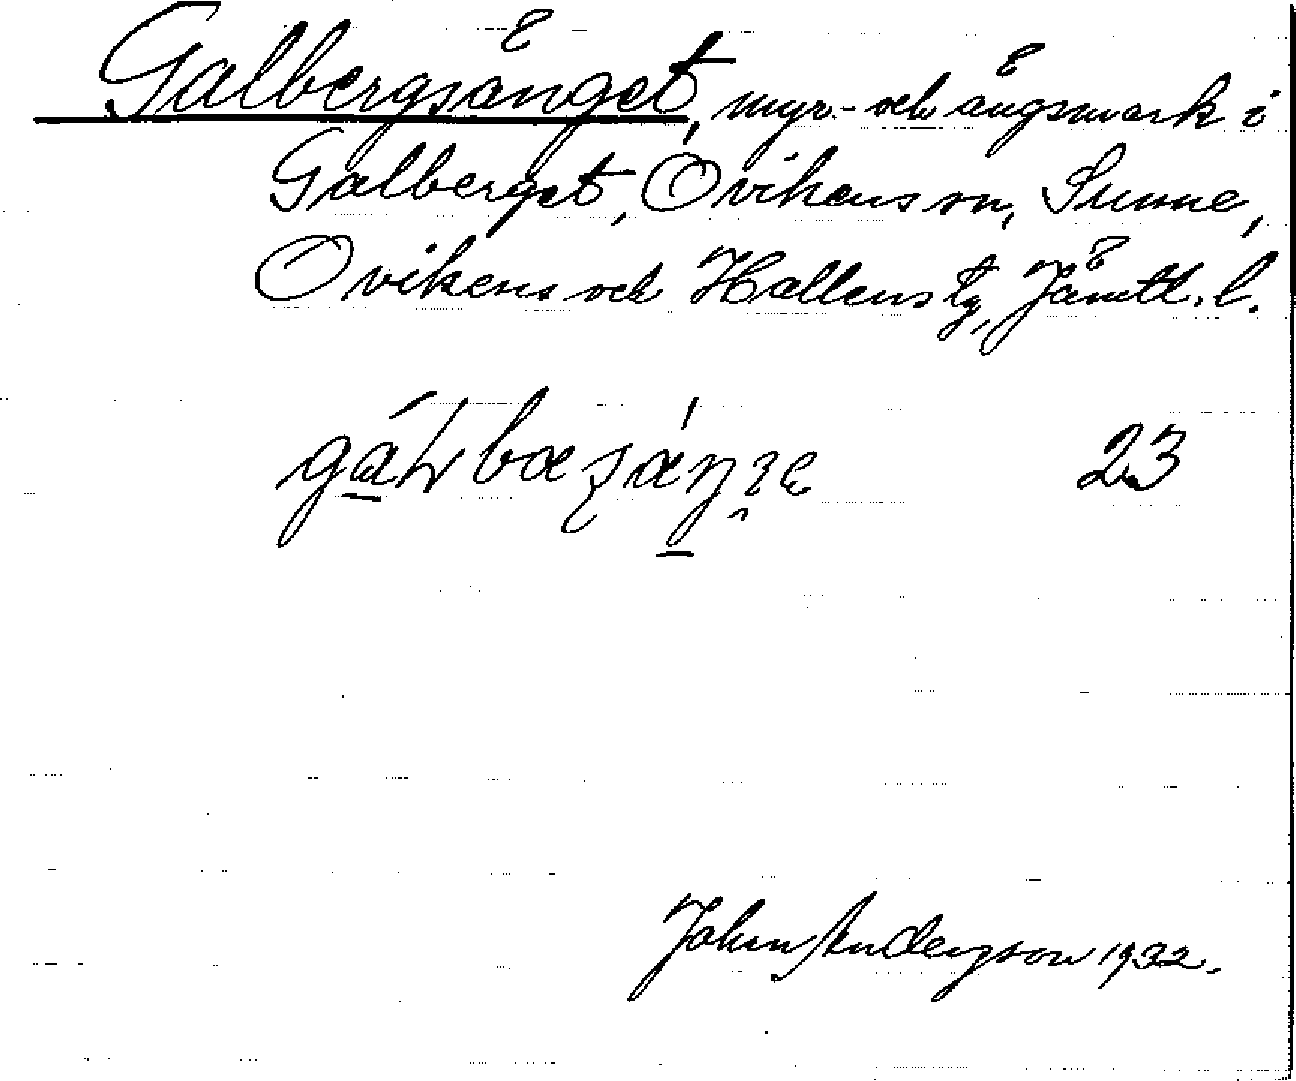 Galbergsänget, myr- och ängsmark i
Galberget, Ovikens sn, Sunne,
Ovikens och Hallens tg, Jämtl. l.
23
John Anderzson 1932.